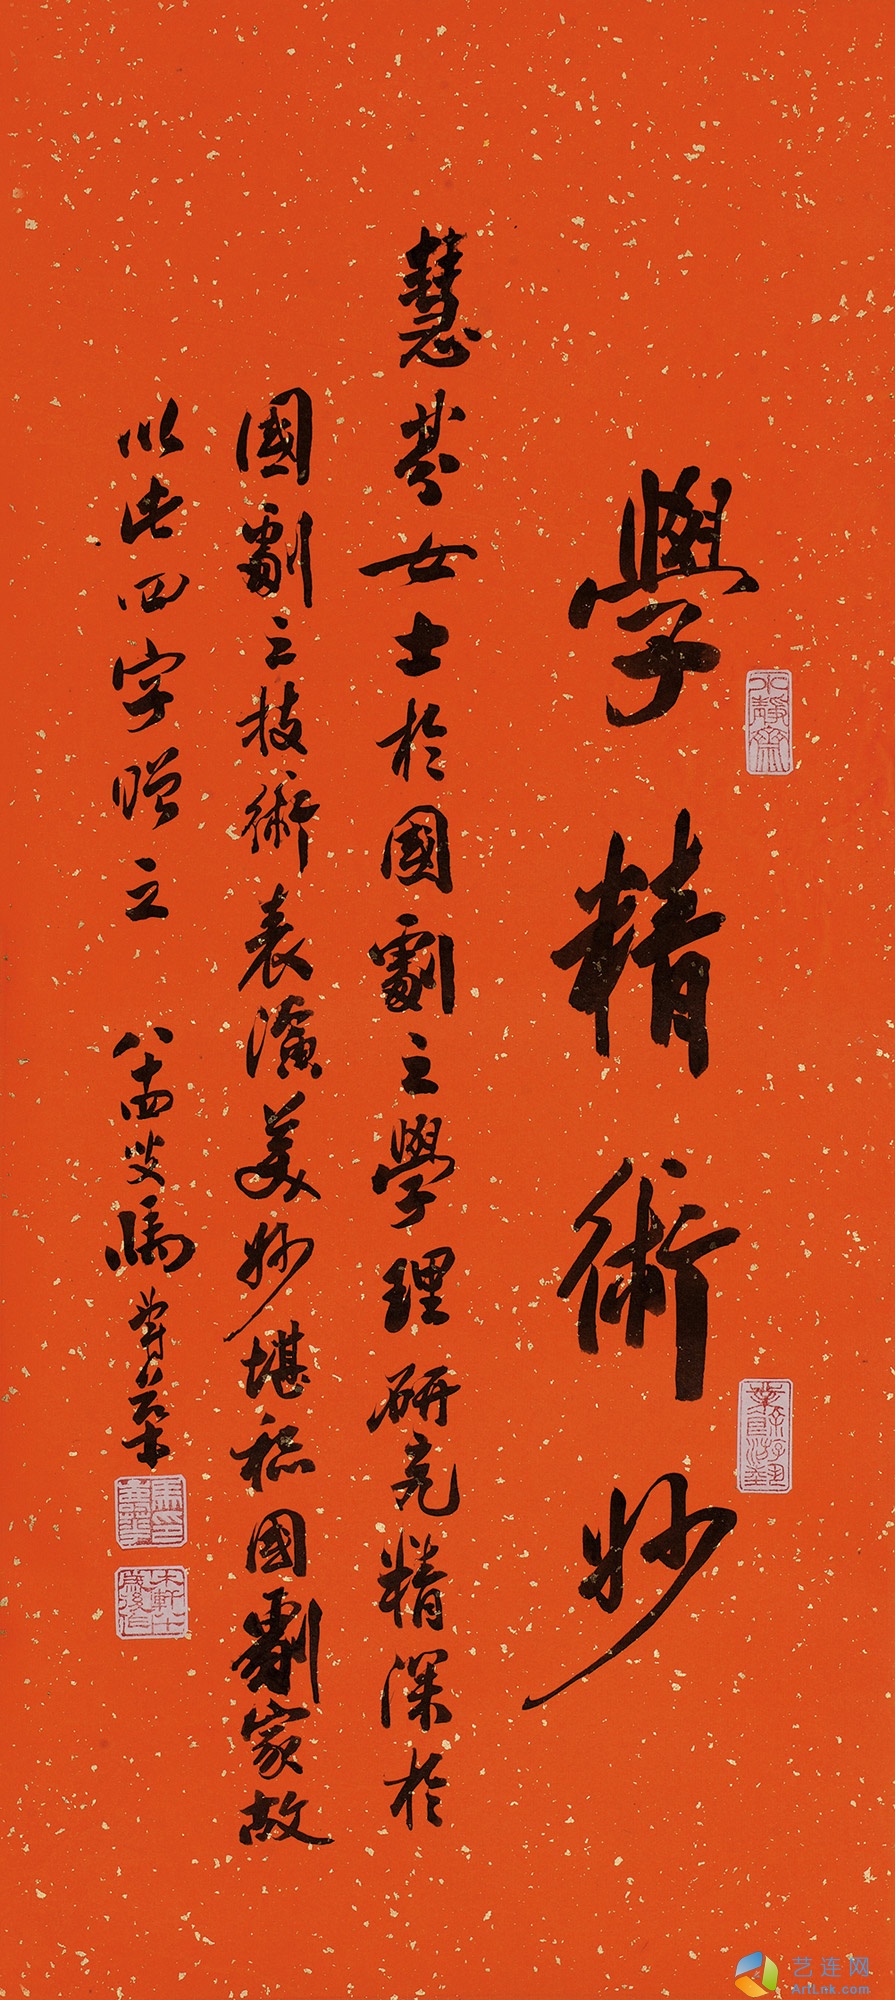 學精術妙
慧芬女士於國劇之學理研究精深於
國劇之技術表演美妙堪稱國劇家故
以此四字贈之 八十四叟馬壽華
業餘游藝
馬壽華印
艺连网
ArtLnk.com